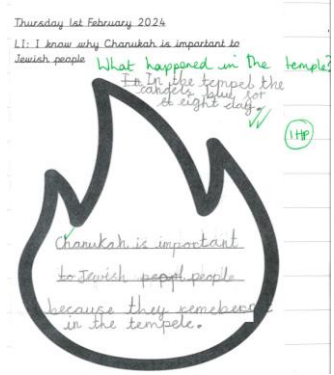 Thursday 1st February 2024
LI: I know why Chanukah is important to
Jewish people
What happened in the temple?
In In the tempel the
cangels for
eight day.
1HP
Chanukah is important
to Jewish peopl people
because they remeber
in the tempele.